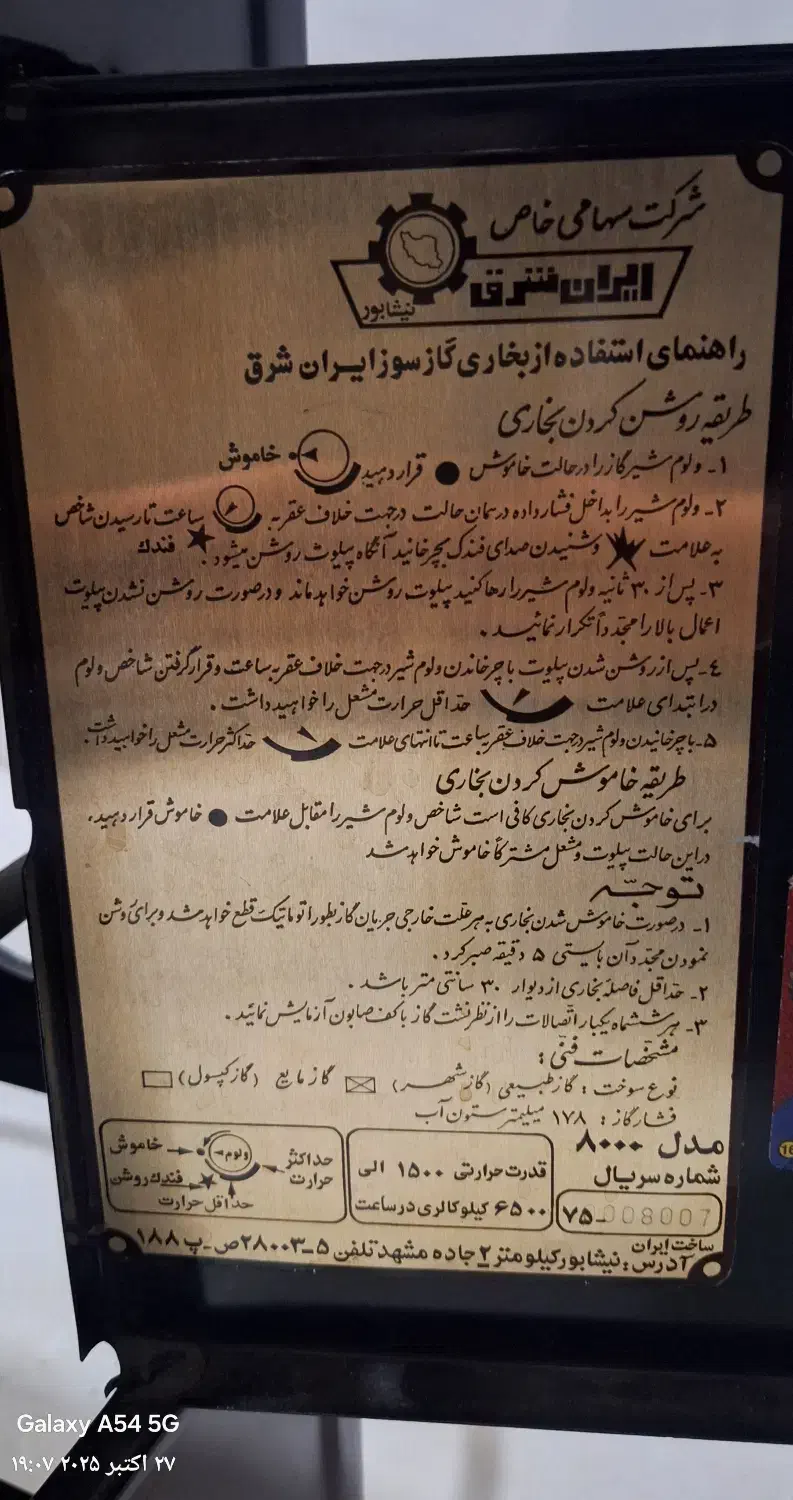 شرکت سهامی خاص
ایران شرق
نیشابور
راهنمای استفاده از بخاری گازسوز ایران شرق
طریقه روشن کردن بخاری
۱- ولوم شیر گاز را در حالت خاموش ● قرار دهید خاموش
۲- ولوم شیر را بداخل فشار داده در همان حالت در جهت خلاف عقربه ساعت تا رسیدن شاخص
به علامت ★ و شنیدن صدای فندک بچرخانید آنگاه پیلوت روشن میشود. ★ فندک
۳- پس از ۳۰ ثانیه ولوم شیر را رها کنید پیلوت روشن خواهد ماند و در صورت روشن نشدن پیلوت
اعمال بالا را مجدداً تکرار نمائید.
٤- پس از روشن شدن پیلوت با چرخاندن ولوم شیر در جهت خلاف عقربه ساعت و قرار گرفتن شاخص ولوم
در ابتدای علامت حداقل حرارت مشعل را خواهید داشت.
۵- با چرخانیدن ولوم شیر در جهت خلاف عقربه ساعت تا انتهای علامت حداکثر حرارت مشعل را خواهید داشت.
طریقه خاموش کردن بخاری
برای خاموش کردن بخاری کافی است شاخص ولوم شیر را مقابل علامت ● خاموش قرار دهید.
در این حالت پیلوت و مشعل مشترکاً خاموش خواهد شد
توجه
۱- در صورت خاموش شدن بخاری به هر علت خارجی جریان گاز بطور اتوماتیک قطع خواهد شد و برای روشن
نمودن مجدد آن بایستی ۵ دقیقه صبر کرد.
۲- حداقل فاصله بخاری از دیوار ۳۰ سانتی متر باشد.
۳- هر ششماه یکبار اتصالات را از نظر نشت گاز با کف صابون آزمایش نمائید.
مشخصات فنی:
نوع سوخت: گاز طبیعی (گاز شهر) ☒ گاز مایع (گاز کپسول) ☐
فشار گاز: ۱۷۸ میلیمتر ستون آب
مدل ۸۰۰۰
شماره سریال
۷۵-008007
قدرت حرارتی ۱۵۰۰ الی
۶۵۰۰ کیلو کالری در ساعت
حداکثر حرارت
ولوم
خاموش
فندک روشن
حداقل حرارت
ساخت ایران
آدرس: نیشابور کیلومتر ۲ جاده مشهد تلفن ۵-۲۸۰۰۳ ص-پ ۱۸۸
Galaxy A54 5G
۲۷ اکتبر ۲۰۲۵ ۱۹:۰۷